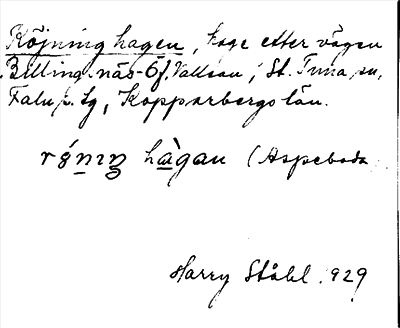 Röjning hagen, hage efter vägen
Billingnäs-Öf. Vallsan, St. Tuna sn,
Falu s. tg, Kopparbergs län.
hàgan (Aspeboda
Harry Ståhl 1929